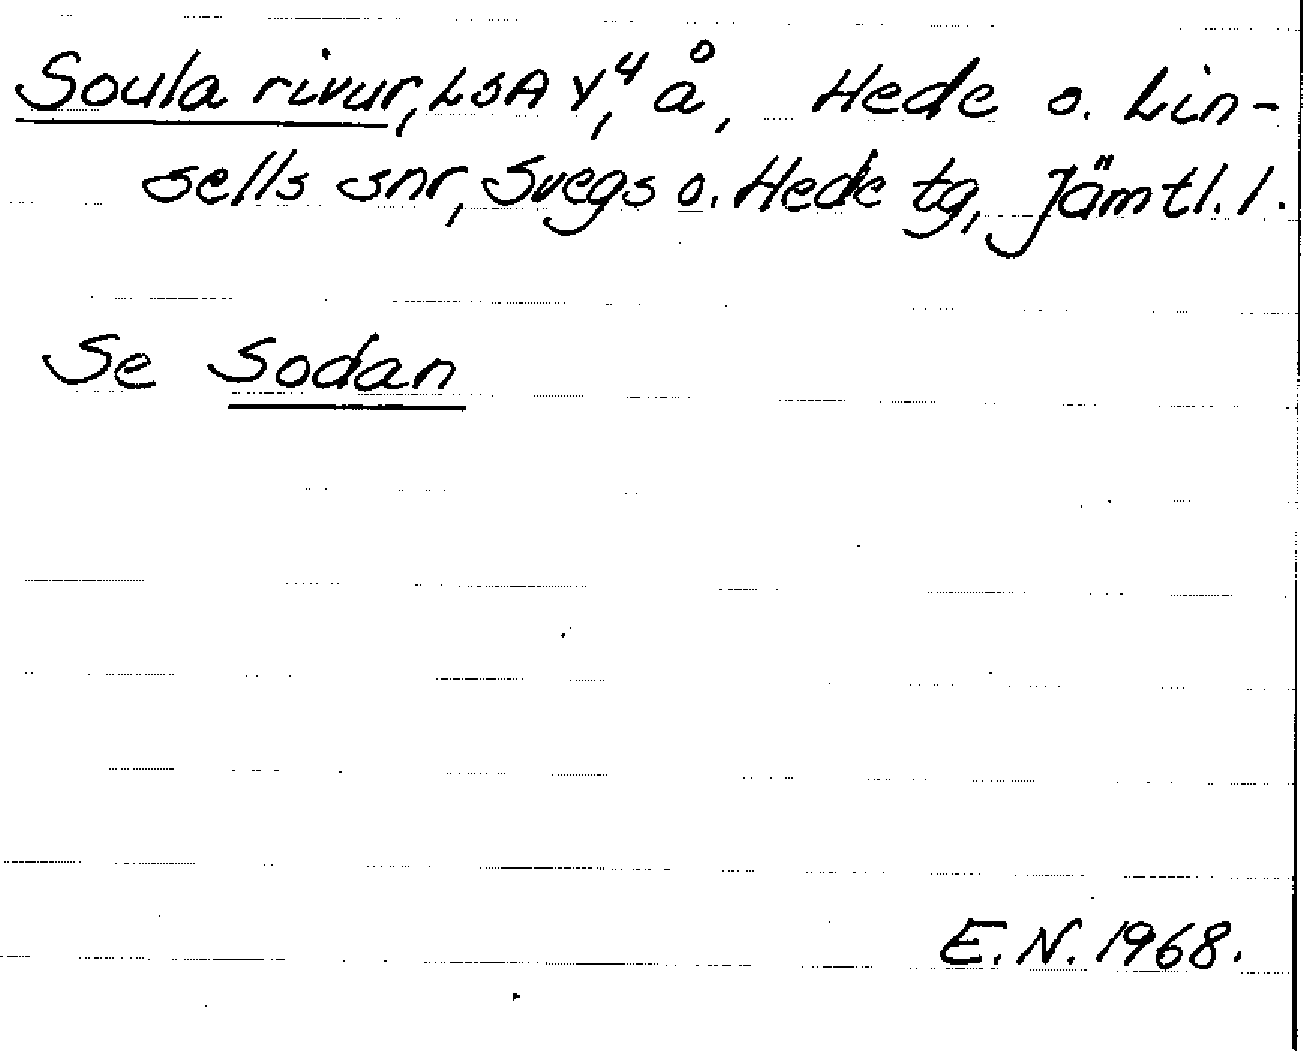 Soula rivur, LSA Y, 4 å, Hede o. Lin-
sells snr, Svegs o. Hede tg, Jämtl. l.
Se Sodan
E. N. 1968.